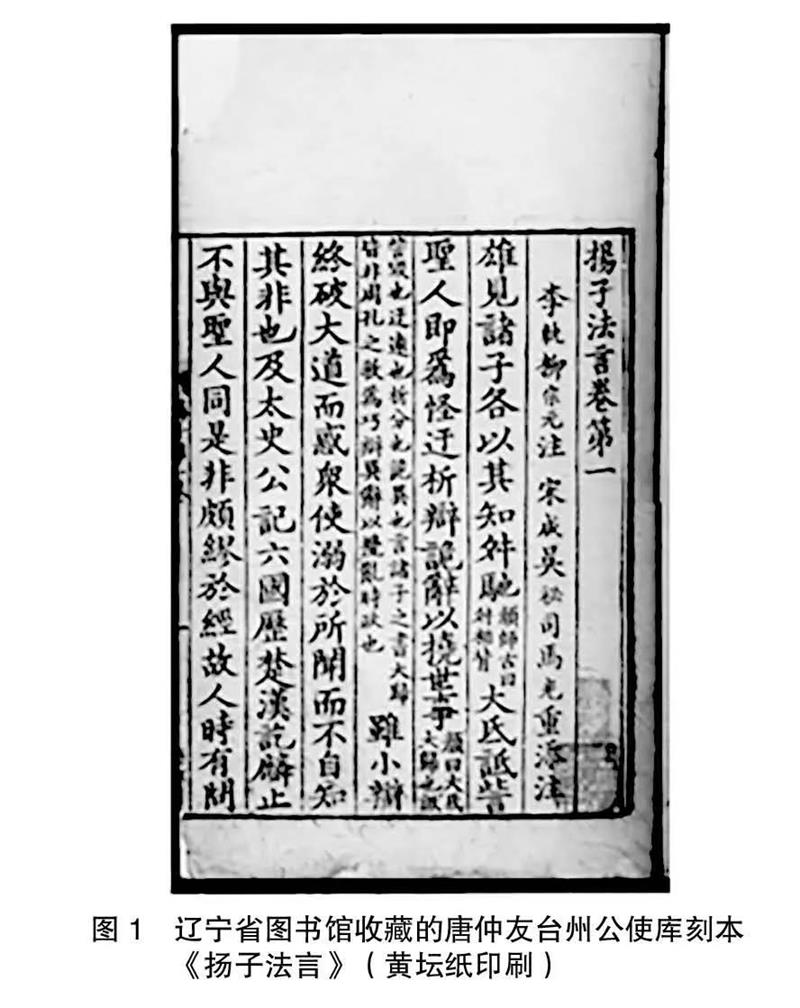 揚子法言卷第一
李軌柳宗元注 宋咸吳祕司馬光重添注
雄見諸子各以其知舛馳顏師古曰舛相背大氐詆訾
聖人即爲怪迂析辯詭辭以撓世事顏曰大氐大歸也詆
訾毀也迂遠也析分也詭異也言諸子之書大歸皆非周孔之教爲巧辯異辭以攪亂時政也雖小辯
終破大道而惑衆使溺於所聞而不自知
其非也及太史公記六國歷楚漢訖麟止
不與聖人同是非頗繆於經故人時有問
图 1 辽宁省图书馆收藏的唐仲友台州公使库刻本
《扬子法言》（黄坛纸印刷）